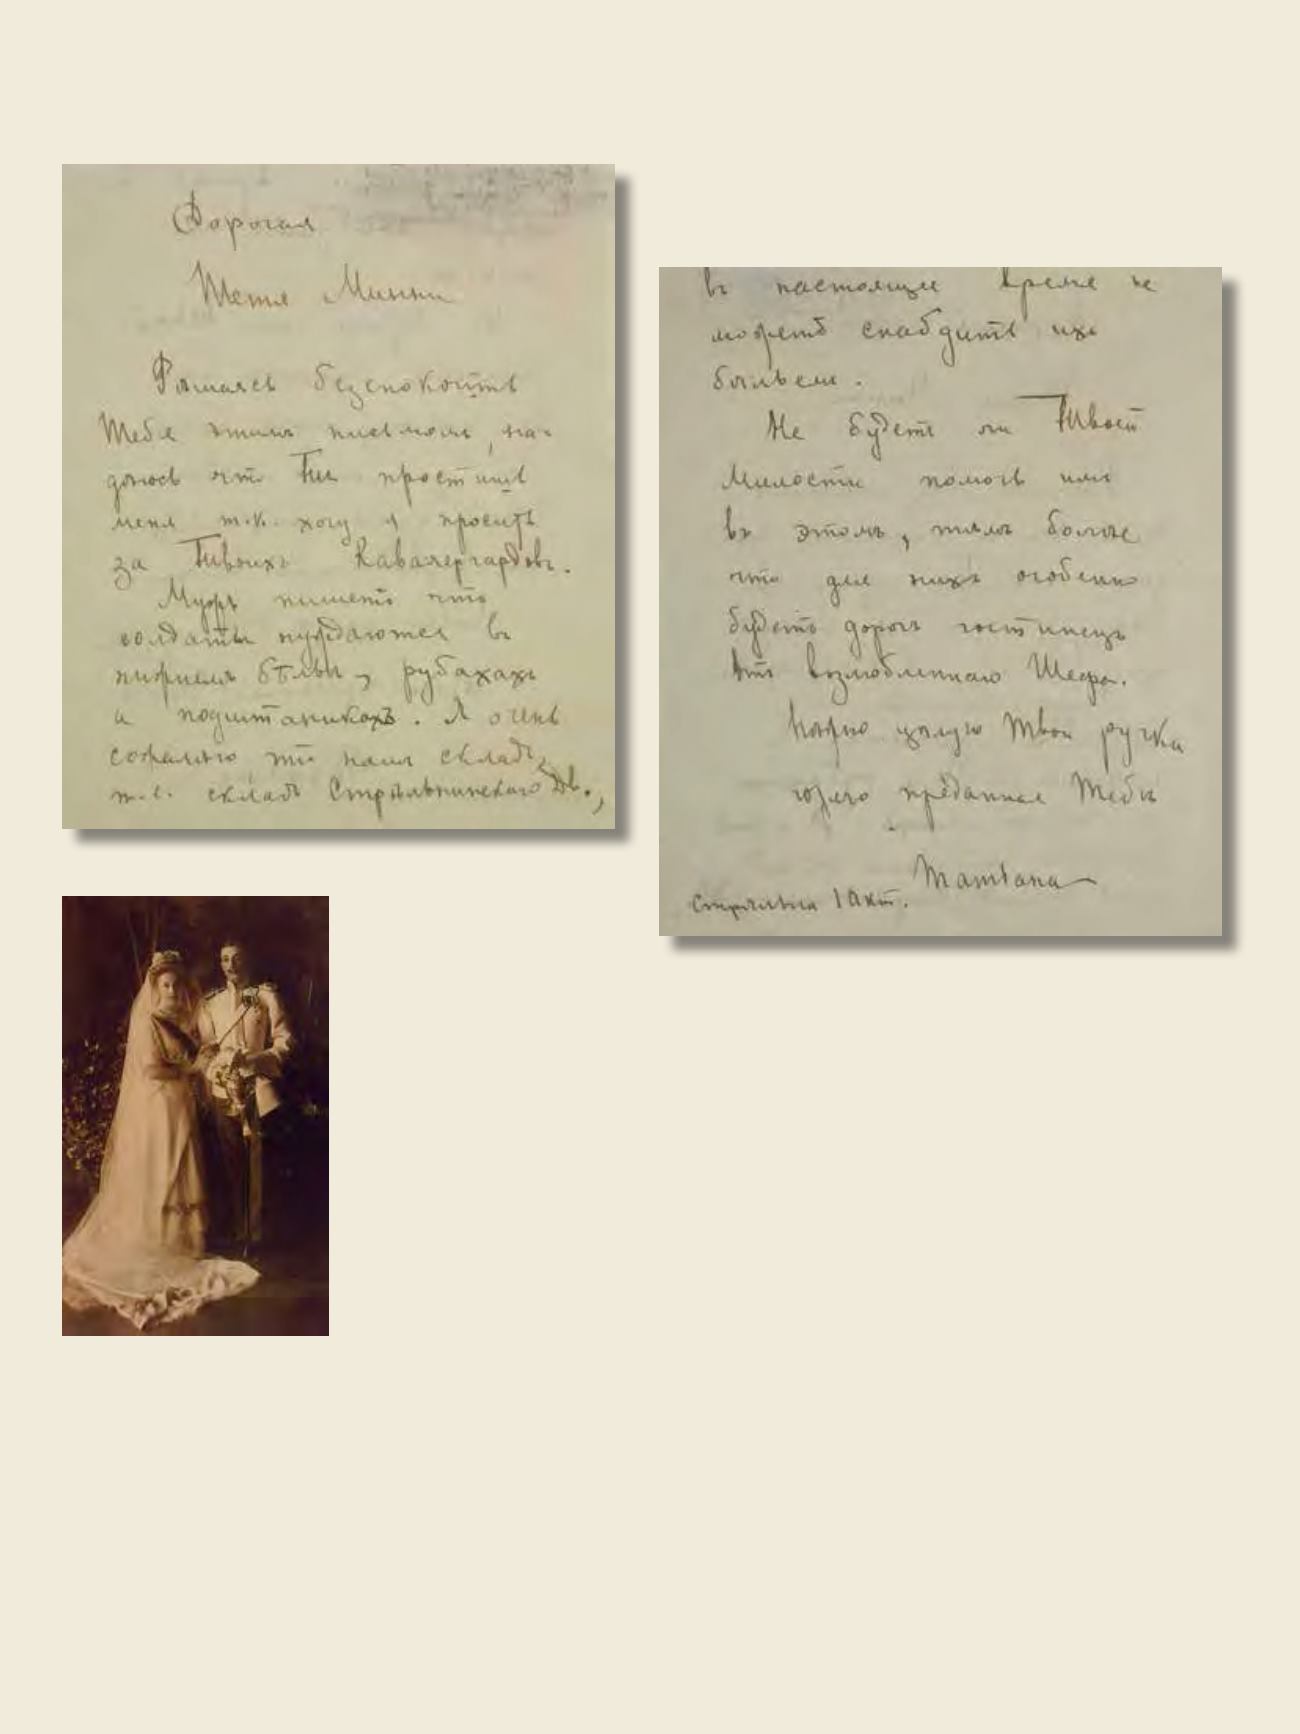 Дорогая
Тетя Минни
Рѣшаюсь безспокоить
Тебя этимъ письмомъ, на-
дѣюсь что Ты простишь
меня т.к. хочу я просить
за Твоихъ Кавалергардовъ.
пишетъ что
солдаты нуждаются въ
нижнемъ бѣльѣ, рубахахъ
и подштаникахъ. Я очень
сожалѣю что нашъ складъ,
т.е. складъ Стрѣльнинскаго Дв.,
въ настоящее время не
можетъ снабдить ихъ
бѣльемъ.
Не будетъ ли Твоей
Милости помочь имъ
въ этомъ, тѣмъ болѣе
что для нихъ особенно
будетъ дорогъ гостинецъ
отъ возлюбленнаго Шефа.
Нѣжно цѣлую Твои ручки
горячо преданная Тебѣ
Татіана
Стрѣльна 1 Окт.